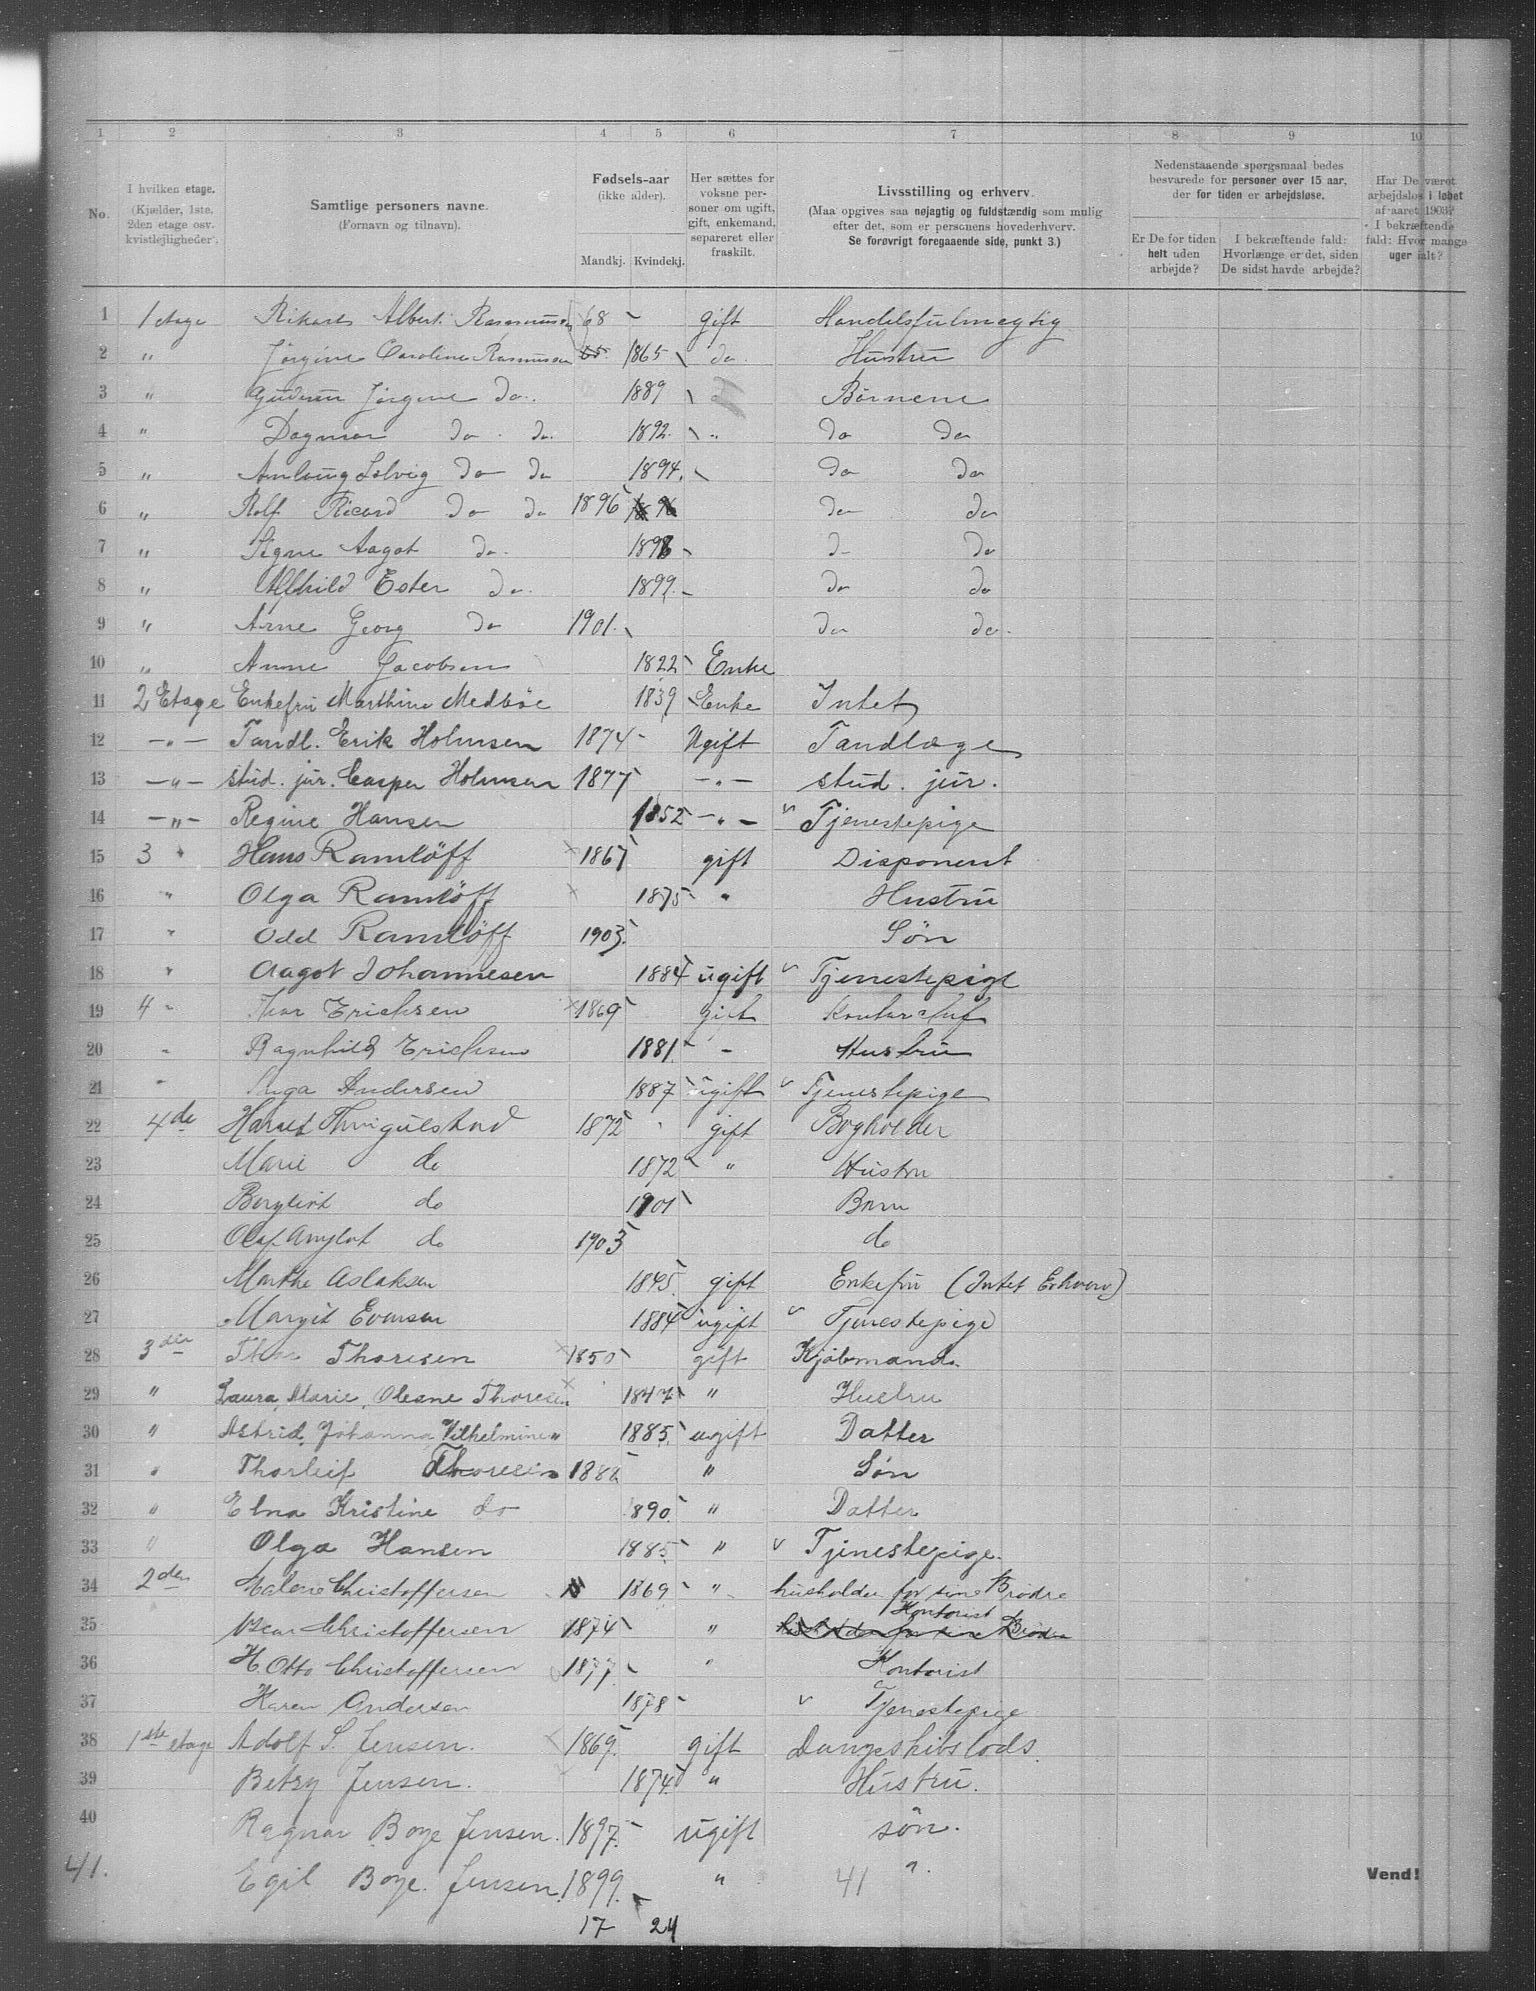 1 2 3 4 5 6 7 8 9 10
No.
I hvilken etage.
(Kjælder, 1ste, 2den etage osv. kvistlejligheder).
Samtlige personers navne.
(Fornavn og tilnavn).
Fødsels-aar
(ikke alder).
Mandkj. Kvindekj.
Her sættes for voksne personer om ugift, gift, enkemand, separeret eller fraskilt.
Livsstilling og erhverv.
(Maa opgives saa nøjagtig og fuldstændig som mulig efter det, som er personens hovederhverv.
Se forøvrigt foregaaende side, punkt 3.)
Nedenstaaende spørgsmaal bedes besvarede for personer over 15 aar, der for tiden er arbejdsløse.
Er De for tiden helt uden arbejde?
I bekræftende fald: Hvorlænge er det, siden De sidst havde arbejde?
Har De været arbejdsløs i løbet af aaret 1903? I bekræftende fald: Hvor mange uger ialt?
1 1 etage Rikard Albert Rasmussen 68 gift Handelsfulmegtig
2 " Jørgine Caroline Rasmussen 65 1865 do Hustru
3 " Gudrun Jørgine do. 1889 Børnene
4 " Dagmar do do. 1892 " do do
5 " Solvig do do 1894 do do
6 " Rolf Ricard do do 1896 do do
7 " Signe Aagot do. 1898 d do
8 " Alfhild Ester do. 1899 do do
9 " Arne Georg do 1901. do do.
10 " Anne Jacobsen 1822 Enke
11 2 Etage Enkefru Marthine Medbøe 1839 Enke Intet
12 — " — Tandl. Erik Holmsen 1874 Ugift Tandlæge
13 — " — stud. jur. Casper Holmsen 1877 — " — stud. jur.
14 — " — Regine Hansen 1852 — " — Tjenestepige
15 3 " Hans Ramlöff 1867 gift Disponent
16 " Olga Ramlöff 1875 " Hustru
17 " Odd Ramlöff 1903 Søn
18 " Aagot Johannesen 1884 ugift Tjenestepige
19 4 " Thor Erichsen 1869 gift Kontorchef
20 " Ragnhild Erichsen 1881 – Hustru
21 " Inga Andersen 1887 ugift Tjenestepige
22 4de Harald 1872 gift Bogholder
23 Marie do 1872 " Hustru
24 Bergliot do 1901 Barn
25 Olaf do 1903 do
26 Marthe Aslaksen 1845 gift Enkefru (Intet Erhverv)
27 Margit Evensen 1884 ugift Tjenestepige
28 3die Thor Thoresen 1850 gift Kjøbmand.
29 " Laura, Marie, Olesne Thoresen 1847 " Hustru
30 " Astrid, Johanna, Vilhelmine " 1885 ugift Datter
31 " Thorleif Thoresen 188 " Søn
32 " Elna Kristine do 1890 " Datter
33 " Olga Hansen 1885 " Tjinestepige.
34 2den Malene Christoffersen 1869 " husholder for sine Brødre
35 Oscar Christoffersen 1874 " Kontorist
36 H. Otto Christoffersen 1877 " Kontorist
37 Karen Andersen 1878 Tjenestepige
38 1ste etage Adolf S. Jensen. 1869. gift Dampskibslods.
39 Betzy Jensen. 1874 " Hustru.
40 Ragnar Boye Jensen. 1897. ugift søn.
41. Egil Boye Jensen 1899. " 41 ".
Vend!
17 24